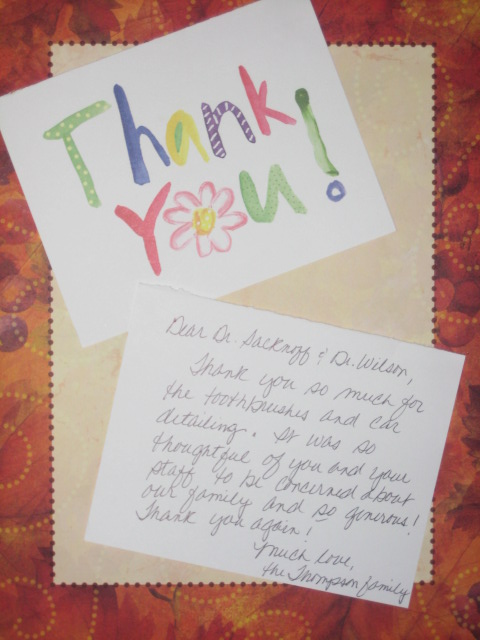 Thank
You!
Dear Dr. Sacknoff & Dr. Wilson,
Thank you so much for
the toothbrushes and car
detailing. It was so
thoughtful of you and your
staff to be concerned about
our family and so generous!
Thank you again!
Much love,
the Thompson family